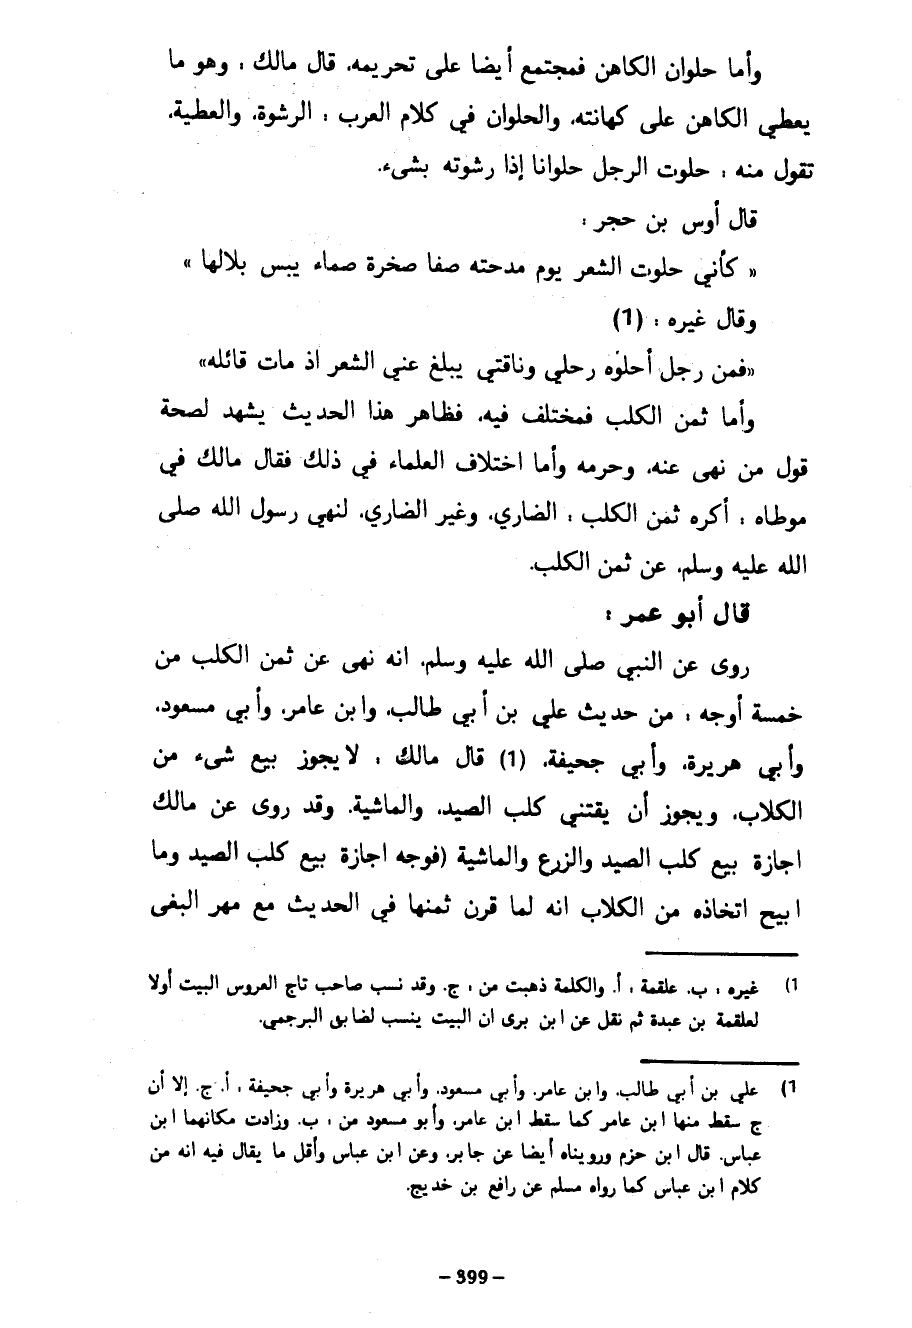 وأما حلوان الكاهن فمجتمع أيضا على تحريمه، قال مالك : وهو ما
يعطي الكاهن على كهانته، والحلوان في كلام العرب : الرشوة، والعطية،
تقول منه : حلوت الرجل حلوانا إذا رشوته بشىء.
قال أوس بن حجر :
« كأني حلوت الشعر يوم مدحته صفا صخرة صماء يبس بلالها »
وقال غيره : (1)
«فمن رجل أحلوه رحلي وناقتي يبلغ عني الشعر اذ مات قائله»
وأما ثمن الكلب فمختلف فيه، فظاهر هذا الحديث يشهد لصحة
قول من نهى عنه، وحرمه وأما اختلاف العلماء في ذلك فقال مالك في
موطاه : أكره ثمن الكلب : الضاري، وغير الضاري، لنهي رسول الله صلى
الله عليه وسلم، عن ثمن الكلب.
قال أبو عمر :
روى عن النبي صلى الله عليه وسلم، انه نهى عن ثمن الكلب من
خمسة أوجه : من حديث علي بن أبي طالب، وابن عامر، وأبي مسعود،
وأبي هريرة، وأبي جحيفة، (1) قال مالك : لا يجوز بيع شىء من
الكلاب، ويجوز أن يقتني كلب الصيد، والماشية، وقد روى عن مالك
اجازة بيع كلب الصيد والزرع والماشية (فوجه اجازة بيع كلب الصيد وما
ابيح اتخاذه من الكلاب انه لما قرن ثمنها في الحديث مع مهر البغى
1) غيره : ب. علقمة : أ. والكلمة ذهبت من : ج. وقد نسب صاحب تاج العروس البيت أولا
لعلقمة بن عبدة ثم نقل عن ابن برى ان البيت ينسب لضابئ البرجمي.
1) علي بن أبي طالب، وابن عامر، وأبي مسعود، وأبي هريرة وأبي جحيفة : أ. ج. إلا أن
ج سقط منها ابن عامر كما سقط ابن عامر، وأبو مسعود من : ب. وزادت مكانهما ابن
عباس. قال ابن حزم ورويناه أيضا عن جابر، وعن ابن عباس وأقل ما يقال فيه انه من
كلام ابن عباس كما رواه مسلم عن رافع بن خديج.
– 399 –